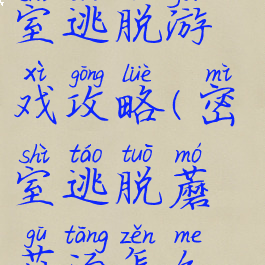 室逃脱游
xì gōng lüè mì
戏攻略(密
shì táo tuō mó
室逃脱蘑
gū tāng zěn me
菇汤怎么